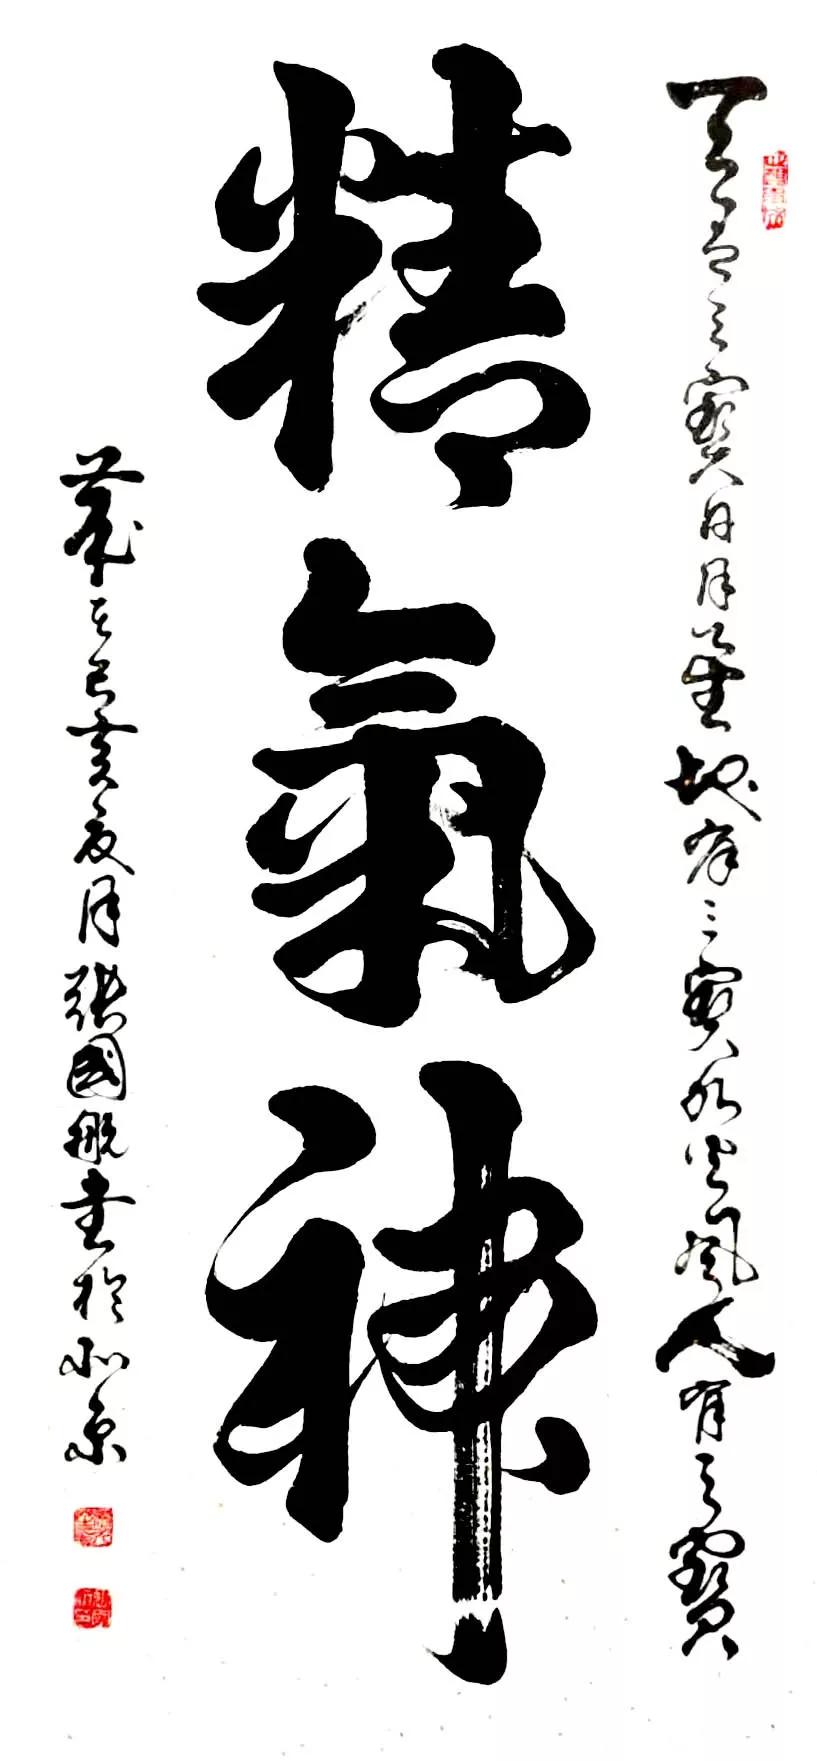 天有三寶日月星地有三寶水火風人有三寶
精氣神
歲在己亥夏月張國・書於北京